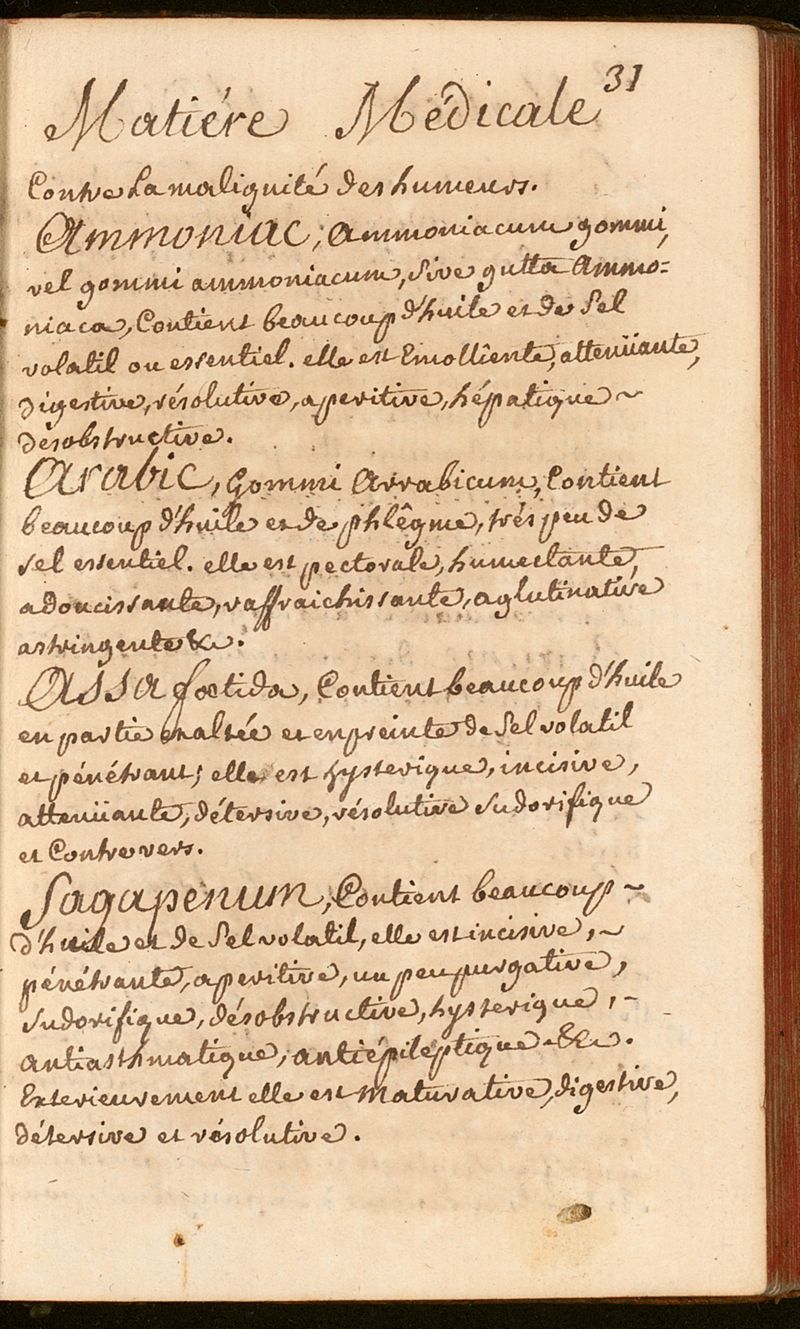 31
Matiére Médicale
Contre la malignité des humeurs.
Ammoniac, ammoniacum gommi,
vel gommi ammoniacum, sive gutta Ammo=
niaca, Contient beaucoup d'huile et de Sel
volatil ou essentiel. elle est Emolliente, attenüante,
digestive, résolutive, aperitive, hépatique ~
désobstructive.
Arabic, gommi Arrabicum, Contient
beaucoup d'huile et de phlêgme, trés peu de
sel essentiel. elle est pectorale, humectante,
adoucissante, raffraichissante, aglutinative
astringente &c.
Assa fœtida, Contient beaucoup d'huile
en partie exaltée et enpreinte de Sel volatil
et pénétrant; elle est hysterique, incisive,
attenüante, détersive, résolutive sudorifique
et Contre vers.
Sagapenum, Contient beaucoup ~
d'huile et de Sel volatil, elle est incisive, ~
pénétrante, aperitive, un peu purgative,
sudorifique, désobstructive, hysterique, -
antiasthmatique, antiépileptique &c.
Exterieurement elle est Maturative, digestive,
détersive et résolutive.